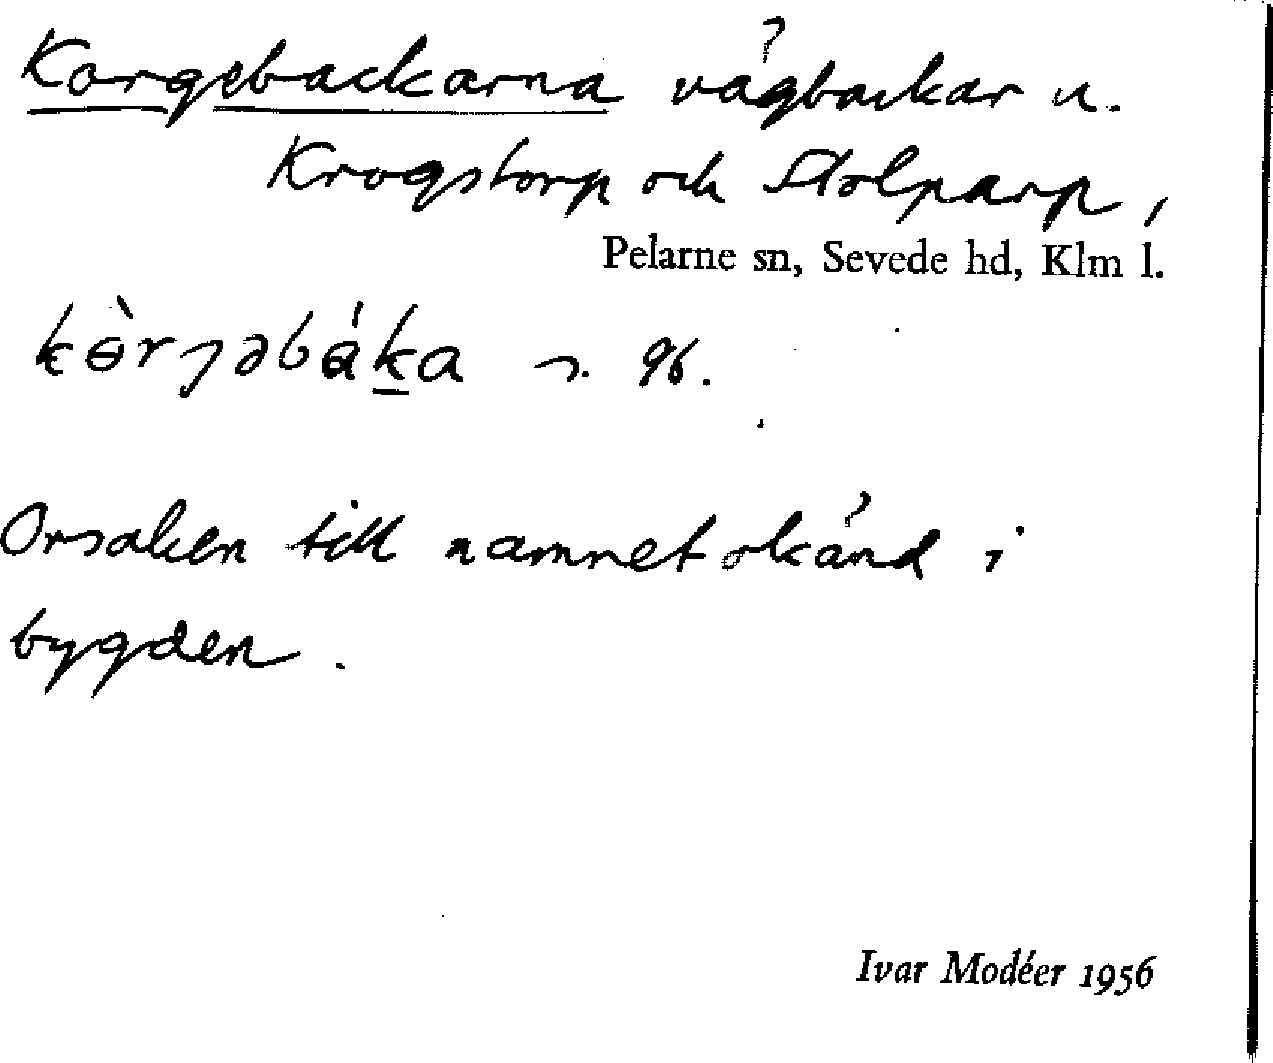 Korgebackarna vägbackar u.
Krogstorp och Stolparp,
Pelarne sn, Sevede hd, Klm l.
kɵ̀rɟəbáka s. 96.
Orsaken till namnet okänd i
bygden.
Ivar Modéer 1956